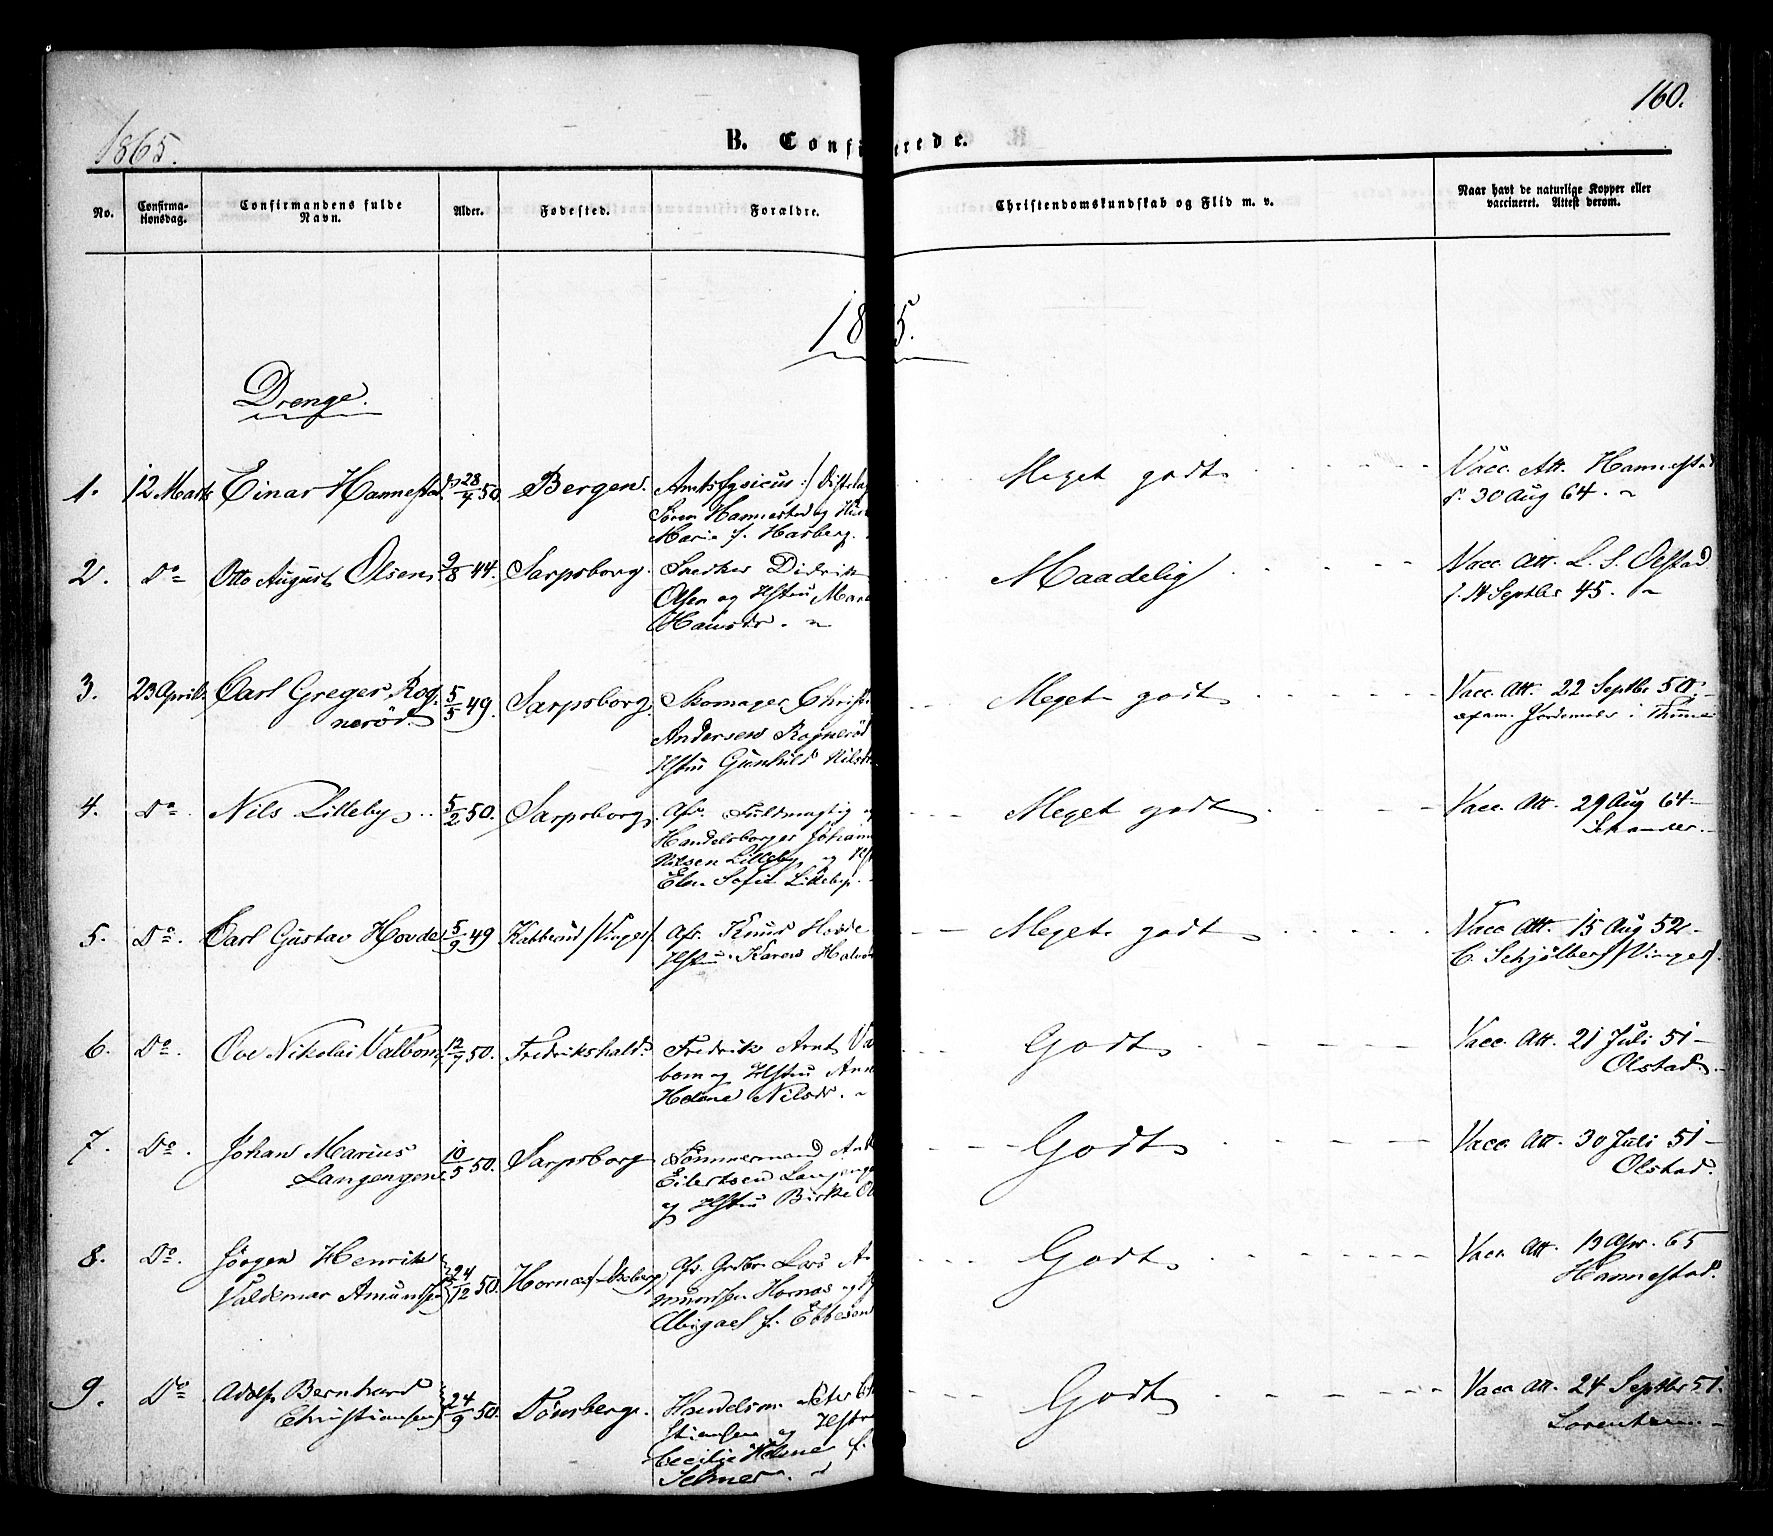 160.
1865.
B. Confirmerede.
No.
Confirma-
tionsdag.
Confirmandens fulde
Navn.
Alder.
Fødested.
Forældre.
Christendomskundskab og Flid m. v.
Naar havt de naturlige Kopper eller
vaccineret. Attest derom.
1865.
Drenge.
1. 12 Marts Einar Hannestad 28/4 50 Bergen. Amtsfysicus
Søren Hannestad og
Marie f. Harberg.
Meget godt
Vacc. Att. Hannestad
d. 30 Aug 64.
2. Do Otto August Olsen 9/8 44. Sarpsborg. Snedker Didrik
Olsen og Hstru
Hansdr.
Maadelig
Vacc. Att. L. S. Olstad
d. 14 Septbr 45.
3. 23 April Carl Greger Rog-
nerød. 5/5 49. Sarpsborg. Skomager
Andersen Rognerød
Hstru Gunhild
Meget godt
Vacc. Att. 22 Septbr 50.
4. Do. Nils Lilleby 5/2 50. Sarpsborg. Afd. Fuldmægtig
Handelsborger
Nilsen Lilleby og
Elen Sofie Lilleby.
Meget godt
Vacc. Att. 29 Aug 64
5. Do. Carl Gustav Hovde 5/9 49 Afd. Knud Hovde
Hstru Karen
Meget godt
Vacc. Att. 15 Aug 52
C. Schjølberg /Vinger/
6. Do. Ove Nikolai Valbom 12/7 50. Fredrikshald. Fredrik Arnt
bom og Hstru
Helene Nilsdr.
Godt
Vacc. Att. 21 Juli 51
Olstad.
7. Do. Johan Marius
Langengen 10/5 50. Sarpsborg Tømmermand
Eilertsen
og Hstru Birthe
Godt
Vacc. Att. 30 Juli 51
Olstad.
8. Do. Jørgen Henrik
Valdemar Amundsen 24/12 50. Hornæs Afd. Grdbr. Lars
mundsen Hornæs
Abigael f. Ebbesen
Godt
Vacc. Att. 19 Apr. 65
Hannestad.
9. Do Adolf Bernhard
Christiansen 24/9 50. Tønsberg. Handelsm. Peter
stiansen og Hstru
Cecilie Helene f.
Selmer.
Godt
Vacc. Att. 24 Septbr 51.